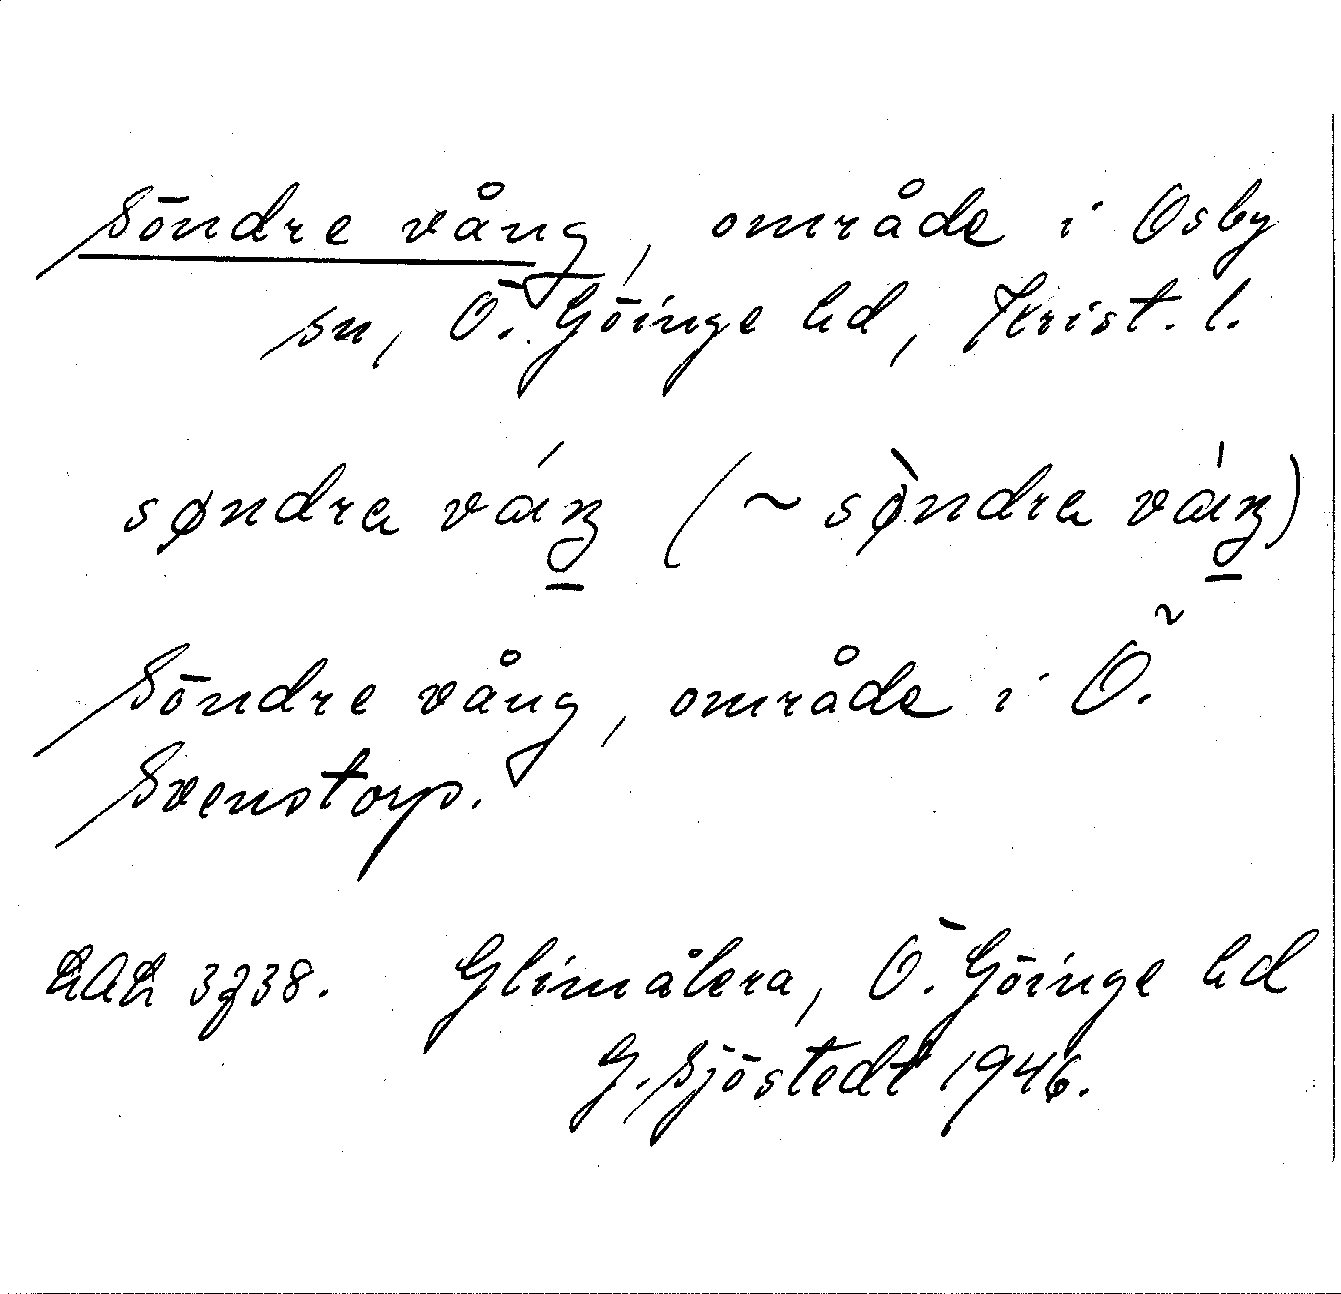 Söndre vång, område i Osby
sn, Ö. Göinge hd, Krist. l.
søndra váŋ (~ sø̀ndra váŋ)
Söndre vång, område i Ö.
Svenstorp.
LAL 3738. Glimåkra, Ö. Göinge hd
G. Sjöstedt 1946.